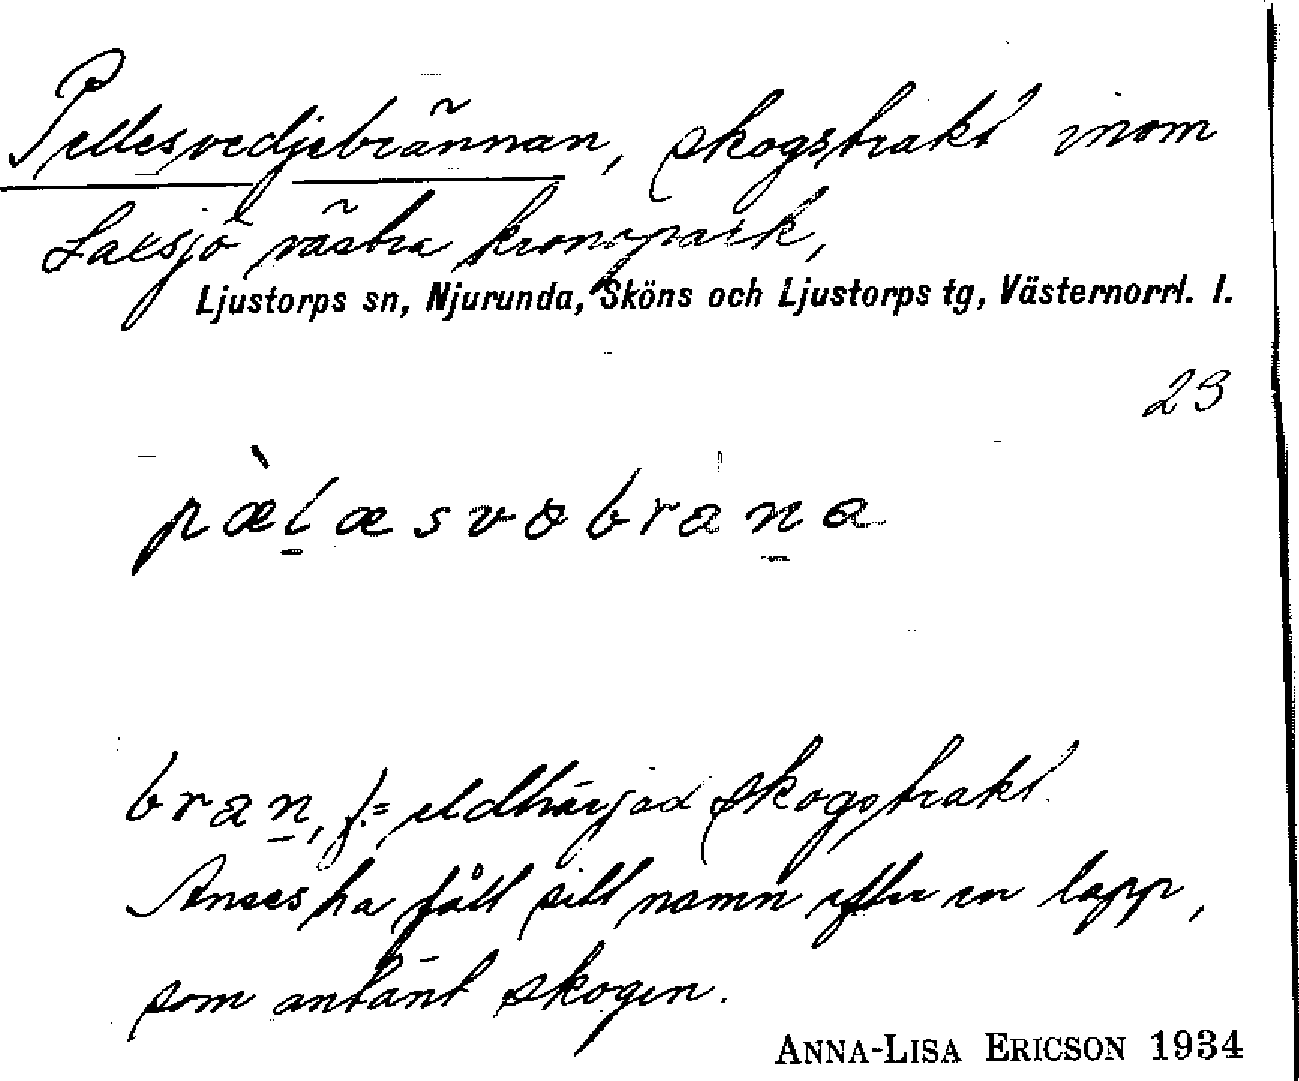 Pellesvedjebrännan, skogstrakt inom
Laxsjö västra kronopark,
Ljustorps sn, Njurunda, Sköns och Ljustorps tg, Västernorrl. l.
23
pæ̀l̠æsvɵbran̠a
bran̠, f. = eldhärjad skogstrakt.
Anses ha fått sitt namn efter en lapp,
som antänt skogen.
ANNA-LISA ERICSON 1934